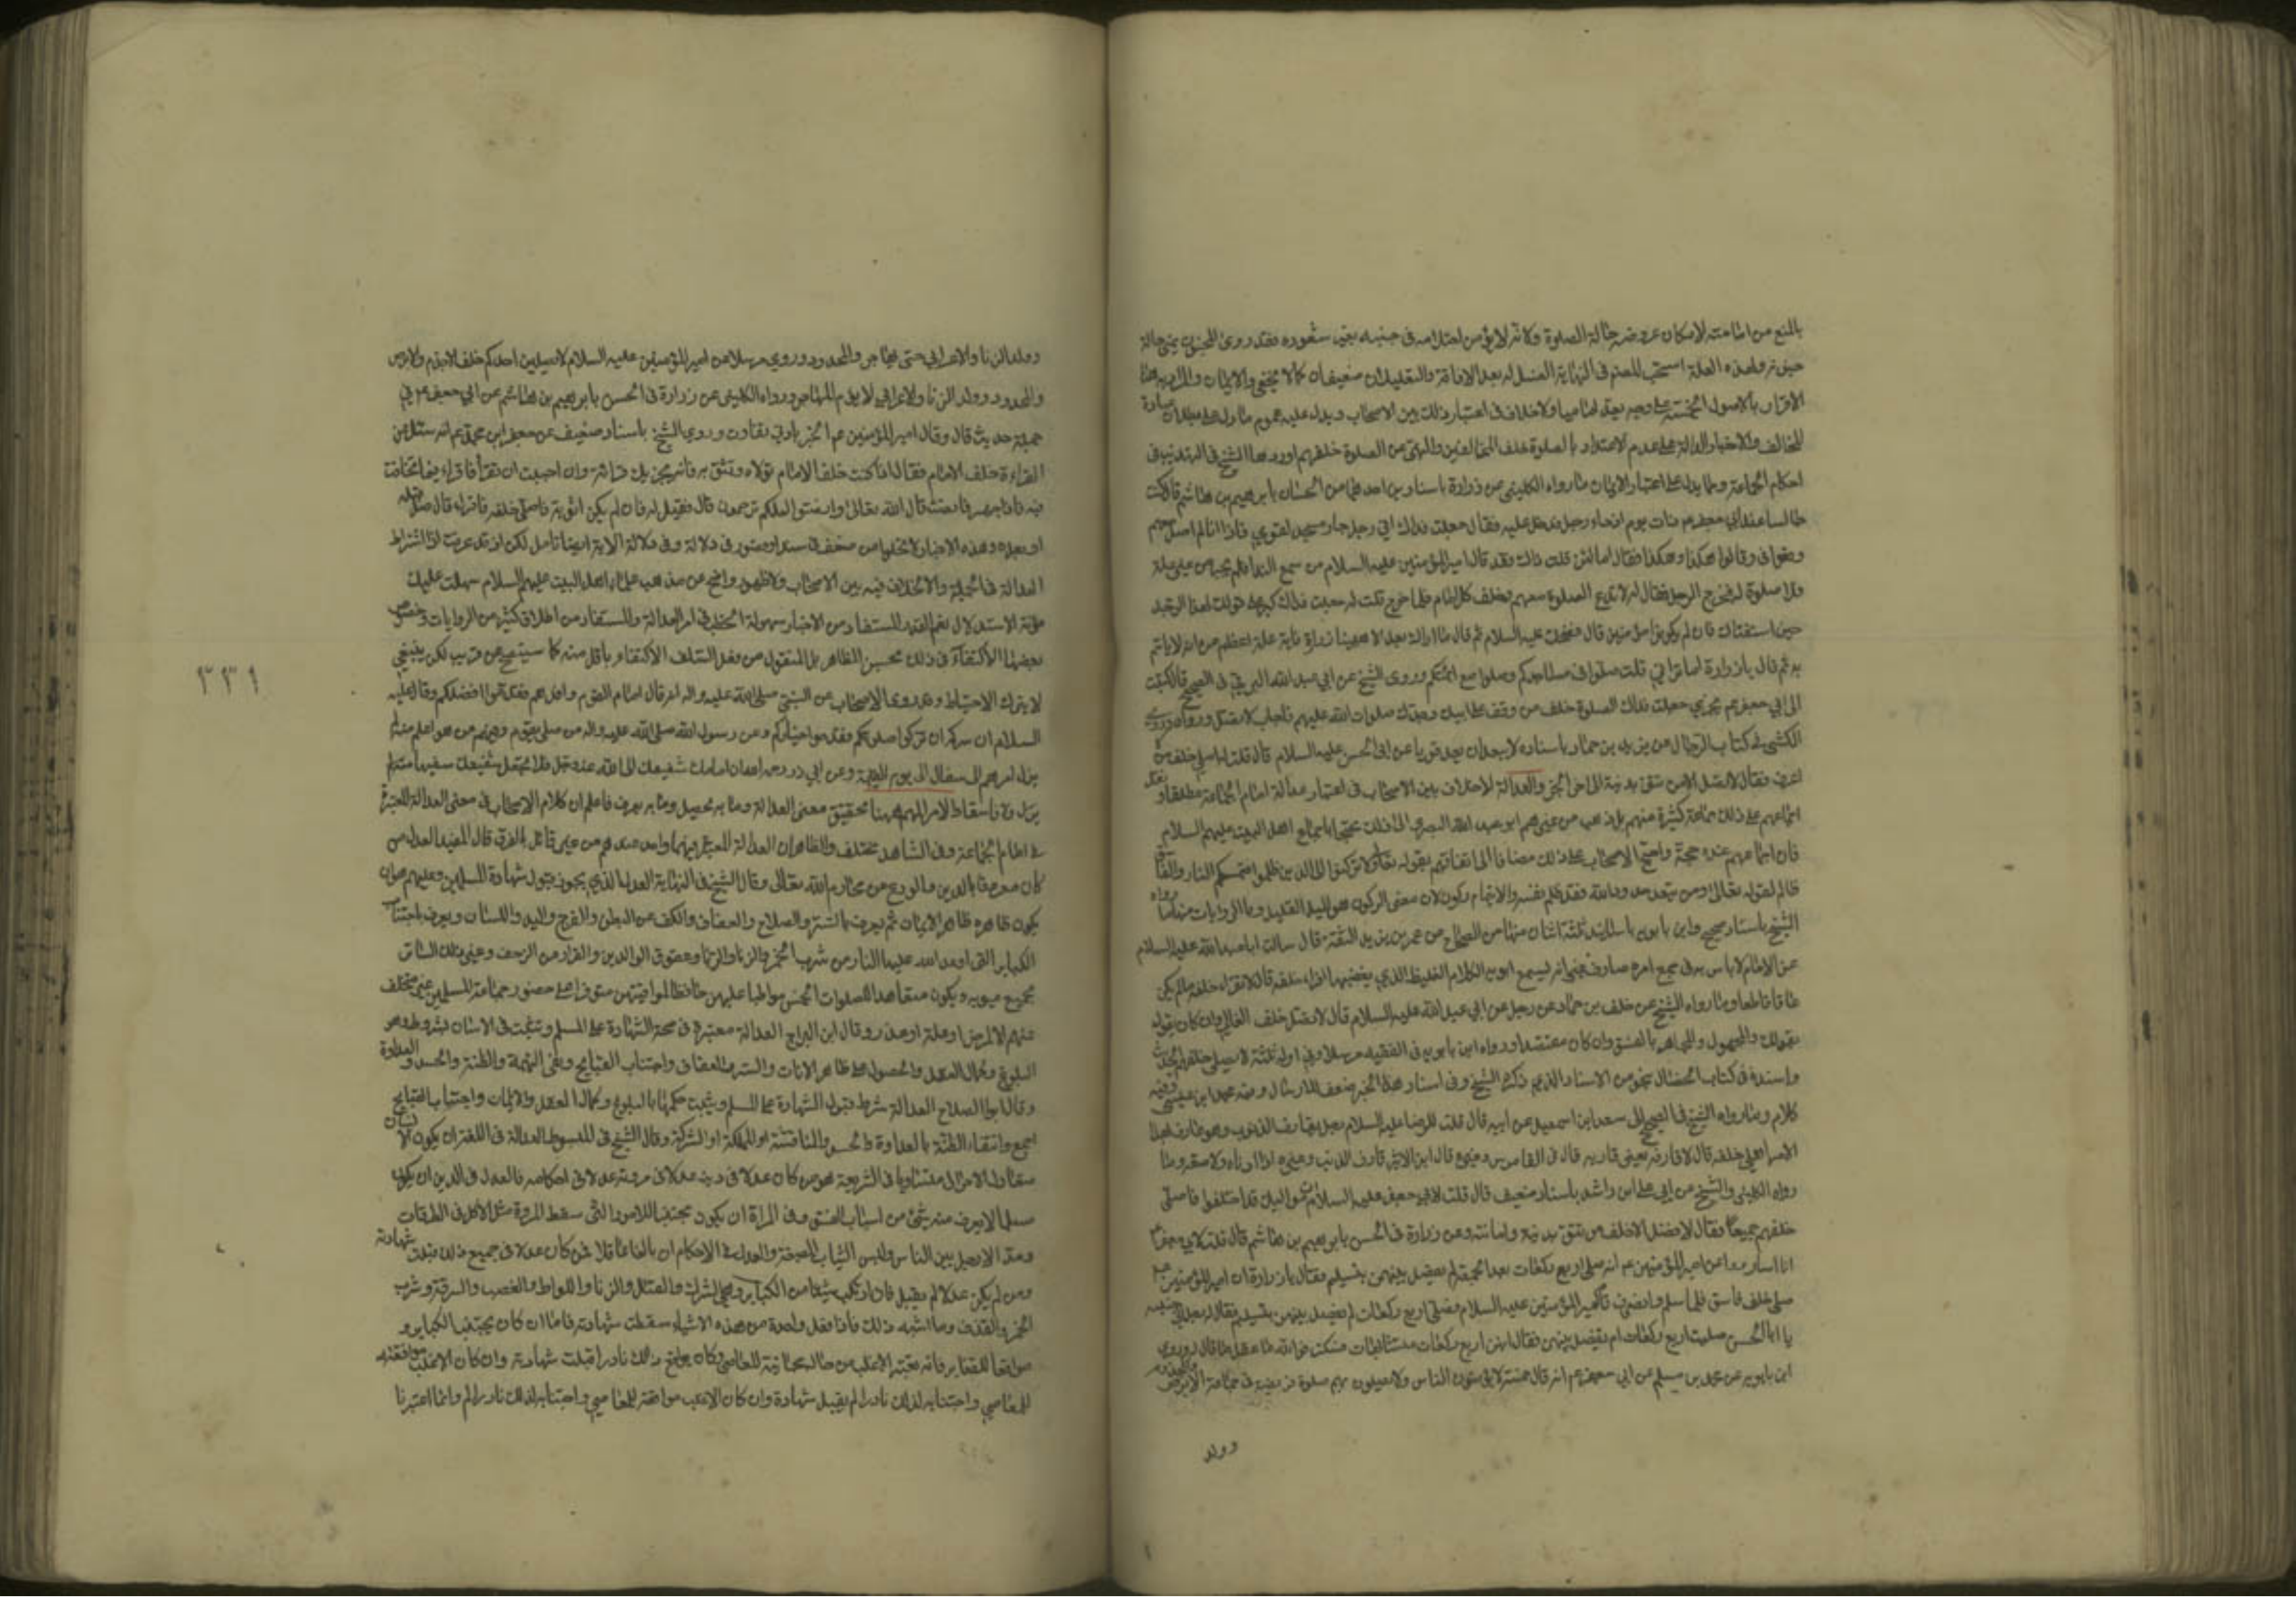 بالمنع من امامته لامكان عروضه حالة الصلوة ولانه لا يؤمن احتلامه في جنبه بغير شعوره فقد روى المجنون يمنى حالة
جنونه ولهذه العلة استحب للمعتم في النهاية الغسل له بعد الافاقة والتعليلان ضعيفان كما لا يخفى والايمان والمراد به هنا
الاقرار بالاصول الخمسة على وجه يعد اماميا ولا خلاف في اعتبار ذلك بين الاصحاب ويدل عليه عموم ما دل على بطلان عبادة
المخالف والاخبار الدالة على عدم الاعتداد بالصلوة خلف المخالفين والنهي عن الصلوة خلفهم اوردها الشيخ في التهذيب في
احكام الجماعة ومما يدل على اعتبار الايمان ما رواه الكليني عن زرارة باسنادين احدهما من الحسان بابرهيم بن هاشم قال كنت
جالسا عند ابي جعفر عم ذات يوم اذ جاءه رجل فدخل عليه فقال جعلت فداك اني رجل جار مسجد لقومي فاذا انا لم اصل معهم
وقعوا في وقالوا هكذا وهكذا فقال اما لئن قلت ذاك فقد قال امير المؤمنين عليه السلام من سمع الندا فلم يجبه من غير علة
فلا صلوة له فخرج الرجل فقال له لا تدع الصلوة معهم وخلف كل امام فلما خرج قلت له جعلت فداك كبر على قولك لهذا الرجل
حين استفتاك فان لم يكونوا مؤمنين قال فضحك عليه السلام ثم قال ما اراك بعد الا ههنا يا زرارة فاية علة اعظم من انه لا ياتم
به ثم قال يا زرارة اما تراني قلت صلوا في مساجدكم وصلوا مع ائمتكم وروى الشيخ عن ابي عبد الله البرقي في الصحيح قال كتبت
الى ابي جعفر عم يجزي جعلت فداك الصلوة خلف من وقف على ابيك وجدك صلوات الله عليهم فاجاب لا تصل وراه وروى
الكشي في كتاب الرجال عن يزيد بن حماد باسناد لا يبعد ان يعد قويا عن ابي الحسن عليه السلام قال قلت له اصلي خلف من لا
اعرف فقال لا تصل الا من تثق بدينه الى اخر الخبر والعدالة لا خلاف بين الاصحاب في اعتبار عدالة امام الجماعة مطلقا ونقل
اجماعهم على ذلك جماعة كثيرة منهم بل ذهب من غيرهم ابو عبد الله البصري الى ذلك محتجا باجماع اهل البيت عليهم السلام
فان اجماعهم عنده حجة واحتج الاصحاب على ذلك مضافا الى اتفاقهم بقوله تعالى ولا تركنوا الى الذين ظلموا فتمسكم النار والفاسق
ظالم لقوله تعالى ومن يتعد حدود الله فقد ظلم نفسه والايتمام ركون لان معنى الركون هو الميل القليل وبالروايات منها ما رواه
الشيخ باسناد صحيح وابن بابويه باسانيد ثلثة اثنان منها من الصحاح عن عمر بن يزيد الثقة قال سالت ابا عبد الله عليه السلام
عن الامام لا باس به في جميع امره عارف غير انه يسمع ابويه الكلام الغليظ الذي يغضبهما اقرا خلفه قال لا تقرا خلفه ما لم يكن
عاقا قاطعا وما رواه الشيخ عن خلف بن حماد عن رجل عن ابي عبد الله عليه السلام قال لا تصل خلف الغالي وان كان يقول
بقولك والمجهول والمجاهر بالفسق وان كان مقتصدا ورواه ابن بابويه في الفقيه مرسلا وفي اوله ثلثة لا يصلى خلفهم
واسنده في كتاب الخصال بنحو من الاسناد الذي ذكره الشيخ وفي اسناد هذا الخبر ضعف للارسال وفيه محمد ابن عيسى وفيه
كلام وما رواه الشيخ في الصحيح الى سعد ابن اسمعيل عن ابيه قال قلت للرضا عليه السلام رجل يقارف الذنوب وهو عارف بهذا
الامر اصلي خلفه قال لا قارفه يعني قاربه قال في القاموس وغيره قال ابن الاثير قارف الذنب وغيره اذا داناه ولاصقه وما
رواه الكليني والشيخ عن ابي علي ابن راشد باسناد ضعيف قال قلت لابي جعفر عليه السلام ان مواليك قد اختلفوا فاصلي
خلفهم جميعا فقال لا تصل الا خلف من تثق بدينه وامانته وعن زرارة في الحسن بابرهيم بن هاشم قال قلت لابي جعفر عم ان
اناسا رووا عن امير المؤمنين عم انه صلى اربع ركعات بعد الجمعة لم يفصل بينهن بتسليم فقال يا زرارة ان امير المؤمنين عم
صلى خلف فاسق فلما سلم وانصرف قام امير المؤمنين عليه السلام فصلى اربع ركعات لم يفصل بينهن بتسليم فقال له رجل الى جنبه
يا ابا الحسن صليت اربع ركعات لم تفصل بينهن فقال انهن اربع ركعات مشتبهات فسكت فوالله ما عقل ما قال له وروى
ابن بابويه عن محمد بن مسلم عن ابي جعفر عم انه قال خمسة لا يؤمون الناس ولا يصلون بهم صلوة فريضة في جماعة الابرص والمجذوم
وولد
وولد الزنا والاعرابي حتى يهاجر والمحدود وروي مرسلا عن امير المؤمنين عليه السلام لا يصلين احدكم خلف الاجذم والابرص
والمحدود وولد الزنا والاعرابي لا يؤم المهاجر ورواه الكليني عن زرارة في الحسن بابرهيم بن هاشم عن ابي جعفر عم في
جملة حديث قال وقال امير المؤمنين عم الخبر بادنى تفاوت وروى الشيخ باسناد صحيف عن جعفر ابن محمد عم انه سئل عن
القراءة خلف الامام فقال اذا كنت خلف الامام تولاه وتثق به فانه يجزيك قراءته وان احببت ان تقرا فاقرا فيما يخافت
فيه فاذا جهر فانصت قال الله تعالى وانصتوا لعلكم ترحمون قال فقيل له فان لم يكن اثق به فاصلي خلفه فاقرا قال صل قبله
او بعده وهذه الاخبار لا تخلوا من ضعف في سند او قصور في دلالة وفي دلالة الاية ايضا تامل لكن اذ قد عرفت ان اشتراط
العدالة في الجملة والاختلاف فيه بين الاصحاب ولا ظهور واضح عن مذهب علماء اهل البيت عليهم السلام سهلت عليك
مؤنة الاستدلال نعم القدر المستفاد من الاخبار سهولة الخطب في امر العدالة والمستفاد من اطلاق كثير من الروايات وخصوص
بعضها الاكتفاء في ذلك بحسن الظاهر بل المنقول من فعل السلف الاكتفاء باقل منه كما سيتضح عن قريب لكن ينبغي
لا يترك الاحتياط وقد روى الاصحاب عن النبي صلى الله عليه واله انه قال امام القوم وافدهم فقدموا افضلكم وقال عليه
السلام ان سركم ان تزكوا صلوتكم فقدموا خياركم وعن رسول الله صلى الله عليه واله من صلى بقوم وفيهم من هو اعلم منه لم
يزل امرهم الى سفال الى يوم القيمة وعن ابي ذر رض ان امامك شفيعك الى الله عز وجل فلا تجعل شفيعك سفيها
ههنا تحقيق معنى العدالة وما به تحصيل وما به يعرف فاعلم ان كلام الاصحاب في معنى العدالة المعتبرة
في امام الجماعة وفي الشاهد مختلف والظاهر ان العدالة المعتبرة فيهما واحد عندهم من غير قائل بالفرق قال المفيد العدل من
كان معروفا بالدين والورع عن محارم الله تعالى وقال الشيخ في النهاية العدل الذي يجوز قبول شهادة للمسلمين وعليهم هو ان
يكون ظاهره ظاهر الايمان ثم يعرف بالستر والصلاح والعفاف والكف عن البطن والفرج واليد واللسان ويعرف باجتناب
الكبائر التي اوعد الله عليها النار من شرب الخمر والزنا والربا وعقوق الوالدين والفرار من الزحف وغير ذلك الساتر
لجميع عيوبه ويكون متعاهدا للصلوات الخمس مواظبا عليهن حافظا لمواقيتهن متوفرا على حضور جماعة المسلمين غير متخلف
عنهم الا لمرض او علة او عذر وقال ابن البراج العدالة معتبرة في صحة الشهادة على المسلم وتثبت في الانسان بشروط وهو
البلوغ وكمال العقل والحصول على ظاهر الايمان والستر والعفاف واجتناب القبايح ونفي التهمة والظنة والحسد والعداوة
وقال ابو الصلاح العدالة شرط قبول الشهادة على المسلم ويثبت حكمها بالبلوغ وكمال العقل والايمان واجتناب القبايح
اجمع وانتفاء الظنة بالعداوة والحسد والمنافسة او المملكة او الشركة وقال الشيخ في المبسوط العدالة في اللغة ان يكون الانسان
متعادل الاحوال متساويا في الشريعة هو من كان عدلا في دينه عدلا في مروته عدلا في احكامه فالعدل في الدين ان يكون
مسلما لا يعرف منه شئ من اسباب الفسق وفي المراة ان يكون مجتنبا للامور التي تسقط المروة مثل الاكل في الطرقات
ومد الارجل بين الناس ولبس الثياب المصبغة والعدل في الاحكام ان بالغا عاقلا فمن كان عدلا في جميع ذلك قبلت شهادته
ومن لم يكن عدلا لم يقبل فاذا ارتكب شيئا من الكبائر وهي الشرك والقتل والزنا واللواط والغصب والسرقة وشرب
الخمر والقذف وما اشبه ذلك فاذا فعل واحدة من هذه الاشياء سقطت شهادته فاما ان كان يجتنب الكباير و
مواقعا للصغاير فانه يعتبر الاغلب من حاله مجانبة للمعاصي وكان يواقع ذلك نادرا قبلت شهادته وان كان الاغلب مواقعته
للمعاصي واجتنابه لذلك نادرا لم يقبل شهادة وان كان الاغلب مواقعته للمعاصي واجتنابه لذلك نادرا لم وانما اعتبرنا
٣٣٩